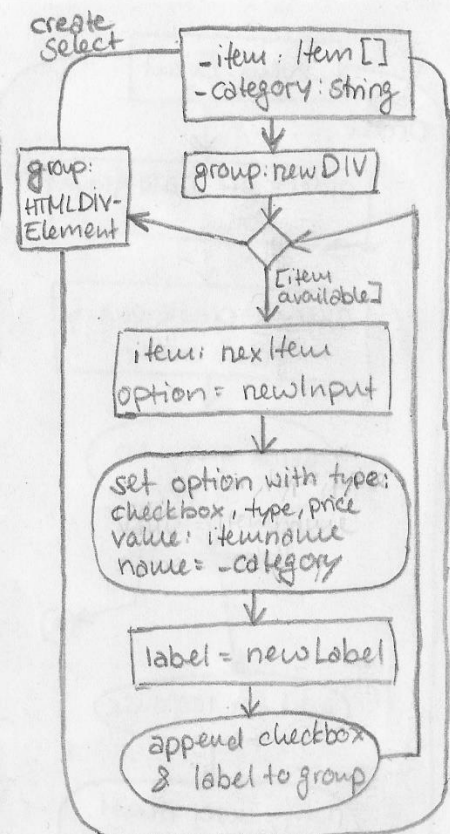 create
select
-item: Item[]
-category: string
group: new DIV
group:
HTMLDIV-
Element
[item
available]
item: nexItem
option = newInput
set option with type:
checkbox, type, price
value: itemname
name= -category
label = newLabel
append checkbox
& label to group